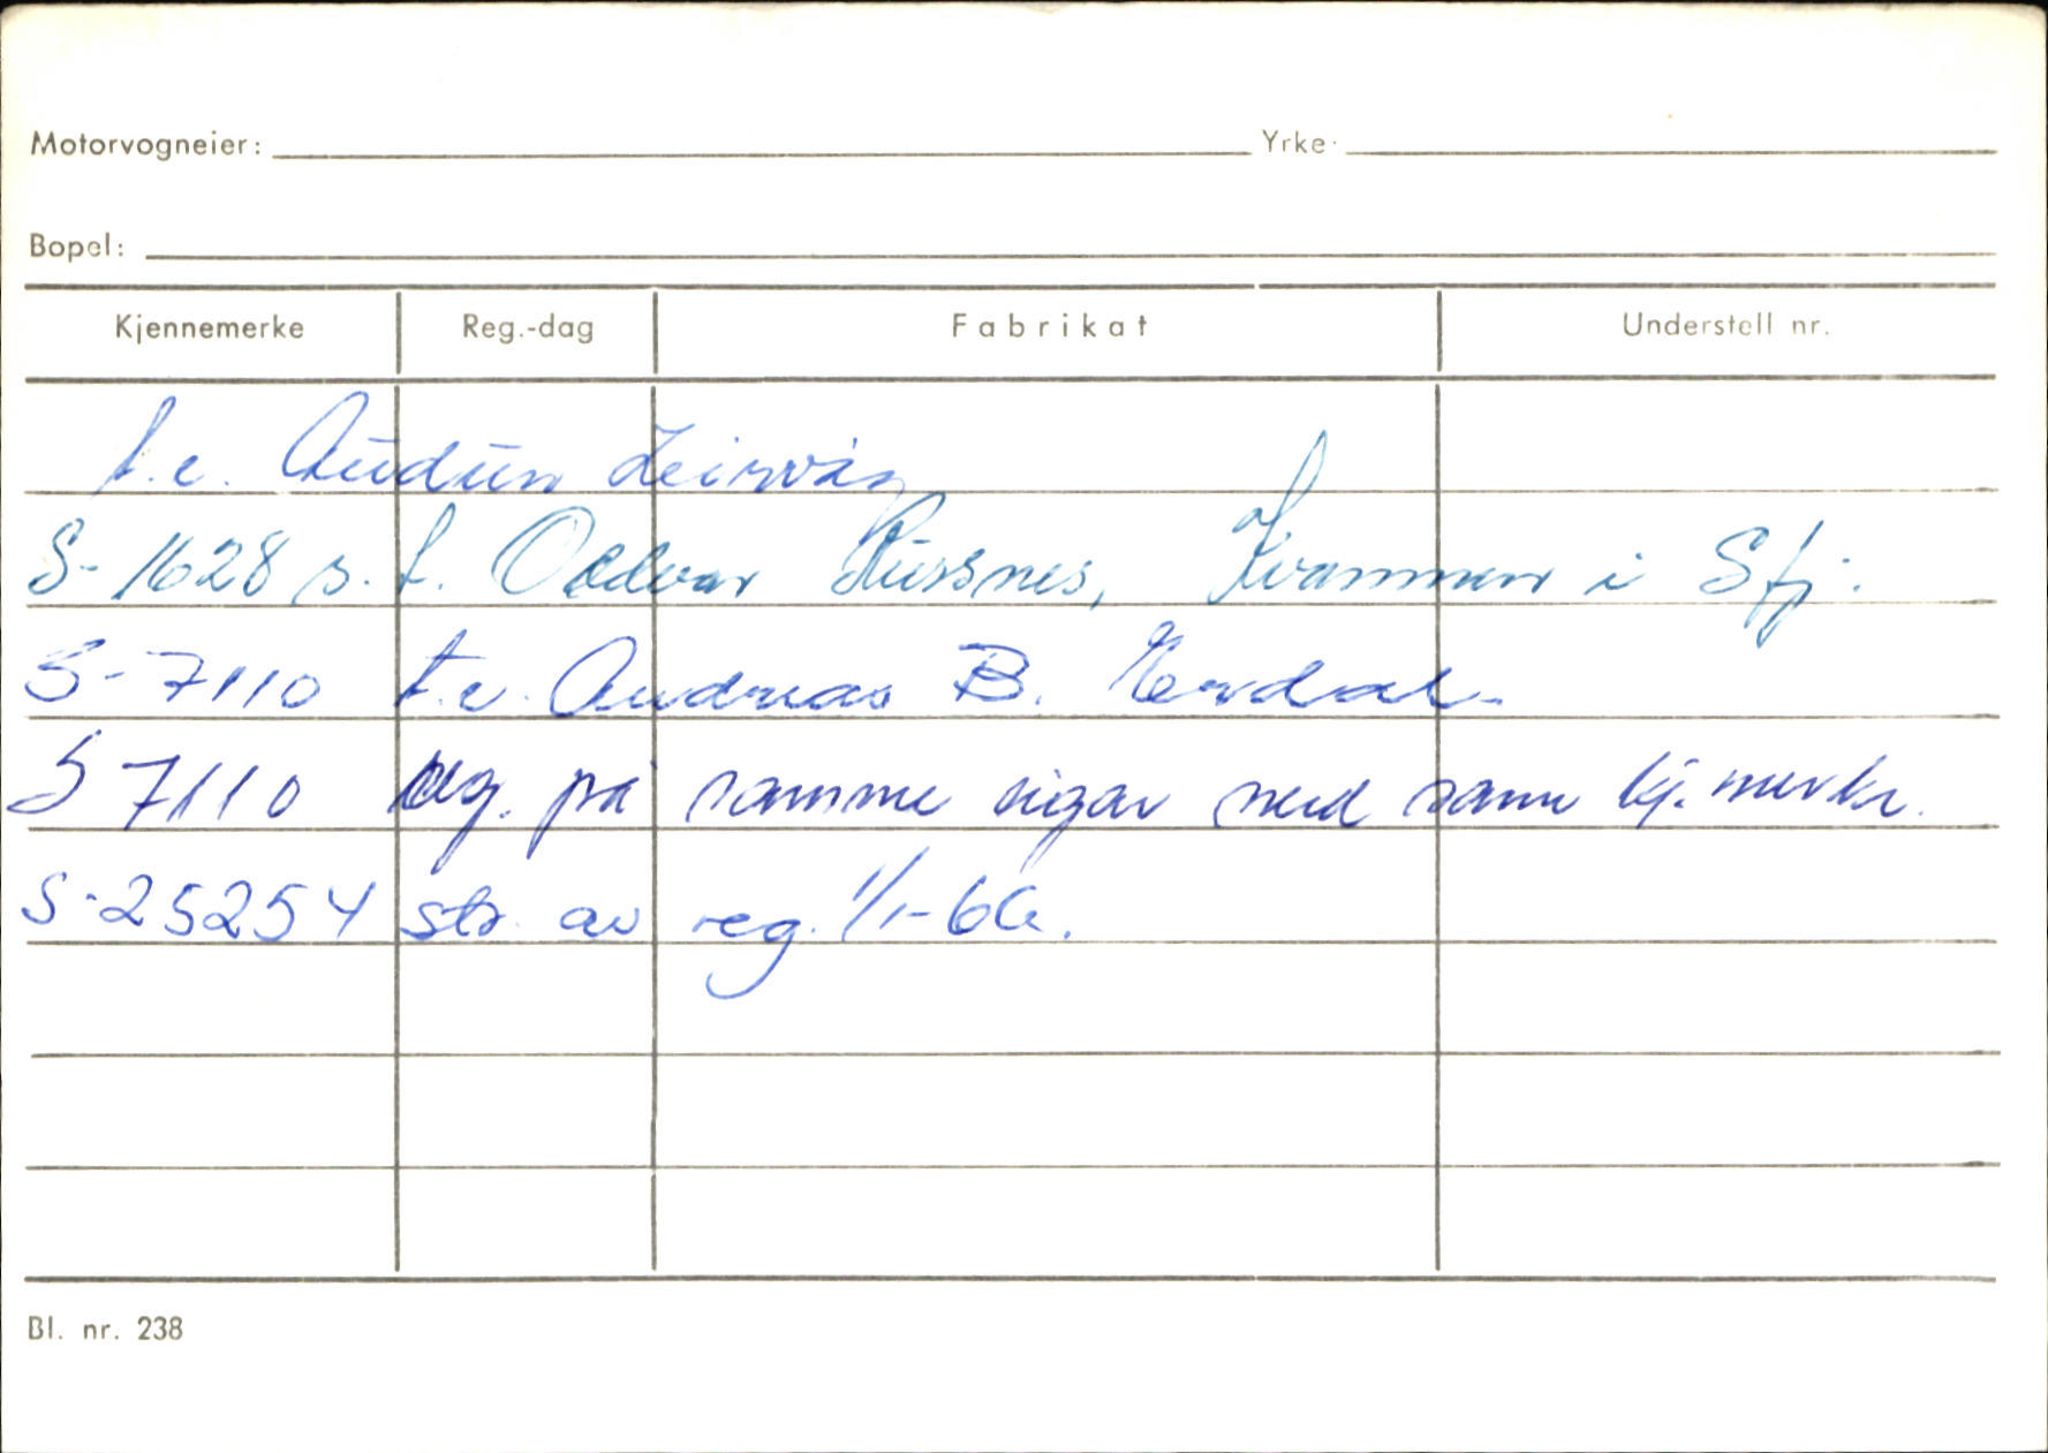 Motorvogneier: Yrke:
Bopel:
Kjennemerke Reg.-dag Fabrikat Understell nr.
t.e. Audun Leirvåg
S-1628 s. t. Oddvar Russnes, Kvammen i Sfj.
S-7110 t.e. Andreas B. Erdal
S 7110 reg. på samme eigar med same kj.merke.
S-25254 str. av reg. 1/1-66.
Bl. nr. 238